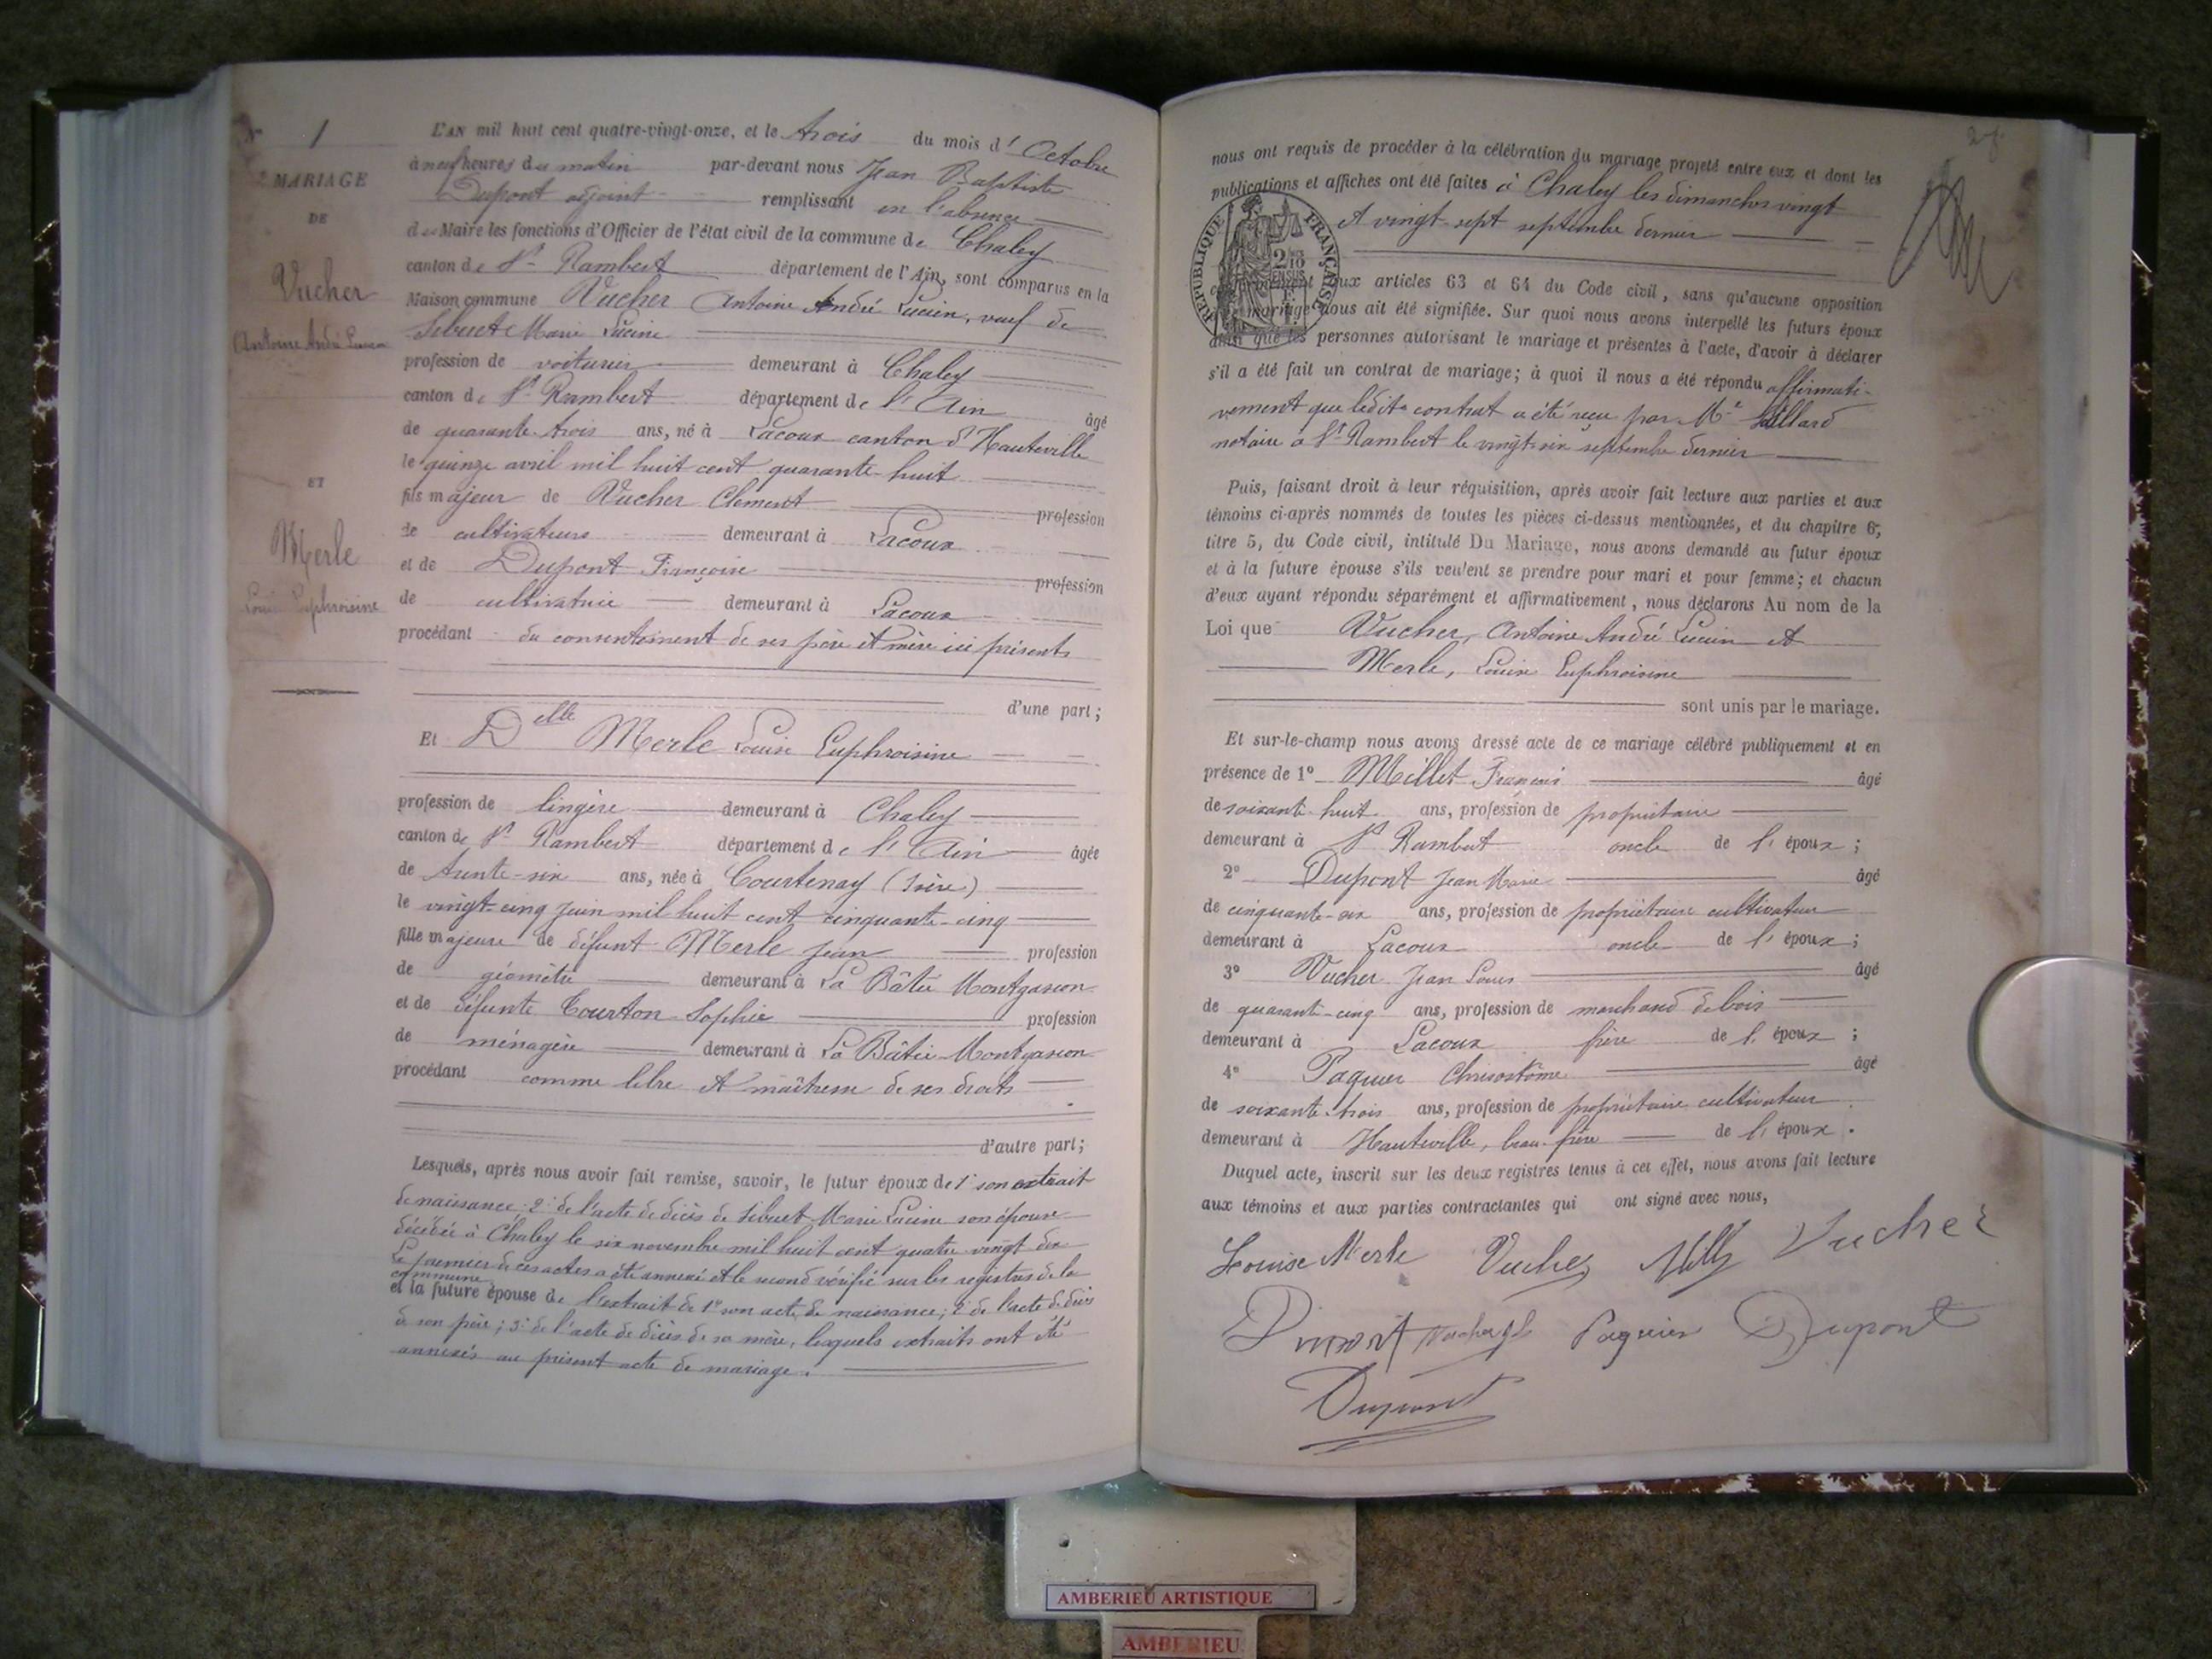 1
MARIAGE
DE
Vucher
Antoine André Lucien
ET
Merle
Louise Euphroisine
L'AN mil huit cent quatre-vingt-onze, et le trois du mois d'Octobre
à neuf heures du matin par-devant nous Jean Baptiste
Dupont adjoint remplissant en l'absence
du Maire les fonctions d'Officier de l'état civil de la commune de Chaley
canton de St Rambert département de l'Ain, sont comparus en la
Maison commune Vucher Antoine André Lucien, veuf de
Marie Lucine
profession de voiturier demeurant à Chaley
canton de St Rambert département de l'Ain âgé
de quarante-trois ans, né à Lacoux canton d'Hauteville
le quinze avril mil huit cent quarante-huit
fils majeur de Vucher Clément profession
de cultivateurs demeurant à Lacoux
et de Dupont Françoise profession
de cultivatrice demeurant à Lacoux
procédant du consentement de ses père et mère ici présents
d'une part;
Et Delle Merle Louise Euphroisine
profession de lingère demeurant à Chaley
canton de St Rambert département de l'Ain âgée
de trente-six ans, née à Courtenay (Isère)
le vingt-cinq juin mil huit cent cinquante-cinq
fille majeure de défunt Merle Jean profession
de géomètre demeurant à La Bâtie Montgascon
et de défunte Courton Sophie profession
de ménagère demeurant à La Bâtie-Montgascon
procédant comme libre et maîtresse de ses droits
d'autre part;
Lesquels, après nous avoir fait remise, savoir, le futur époux de 1° son extrait
de naissance; 2° de l'acte de décès de Marie Lucine son épouse
décédée à Chaley le six novembre mil huit cent quatre-vingt dix
Le premier de ces actes a été annexé et le second vérifié sur les registres de la
commune
et la future épouse de l'extrait de 1° son acte de naissance; 2° de l'acte de décès
de son père; 3° de l'acte de décès de sa mère, lesquels extraits ont été
annexés au présent acte de mariage.
nous ont requis de procéder à la célébration du mariage projeté entre eux et dont les
publications et affiches ont été faites à Chaley les dimanches vingt
et vingt-sept septembre dernier
RÉPUBLIQUE FRANÇAISE
conformément aux articles 63 et 64 du Code civil, sans qu'aucune opposition
mariage nous ait été signifiée. Sur quoi nous avons interpellé les futurs époux
ainsi que les personnes autorisant le mariage et présentes à l'acte, d'avoir à déclarer
s'il a été fait un contrat de mariage; à quoi il nous a été répondu affirmati-
vement que ledit contrat a été reçu par Me
notaire à St Rambert le vingt-six septembre dernier
Puis, faisant droit à leur réquisition, après avoir fait lecture aux parties et aux
témoins ci-après nommés de toutes les pièces ci-dessus mentionnées, et du chapitre 6,
titre 5, du Code civil, intitulé Du Mariage, nous avons demandé au futur époux
et à la future épouse s'ils veulent se prendre pour mari et pour femme; et chacun
d'eux ayant répondu séparément et affirmativement, nous déclarons Au nom de la
Loi que Vucher, Antoine André Lucien et
Merle, Louise Euphroisine
sont unis par le mariage.
Et sur-le-champ nous avons dressé acte de ce mariage célébré publiquement et en
présence de 1° Millet François âgé
de soixante-huit ans, profession de propriétaire
demeurant à St Rambert oncle de l'époux;
2° Dupont Jean Marie âgé
de cinquante-six ans, profession de propriétaire cultivateur
demeurant à Lacoux oncle de l'époux;
3° Vucher Jean Louis âgé
de quarante-cinq ans, profession de marchand de bois
demeurant à Lacoux frère de l'époux;
4° Paquier Chrisostôme âgé
de soixante-trois ans, profession de propriétaire cultivateur
demeurant à Hauteville, beau-frère de l'époux.
Duquel acte, inscrit sur les deux registres tenus à cet effet, nous avons fait lecture
aux témoins et aux parties contractantes qui ont signé avec nous,
Louise Merle Vucher Vucher
Dupont Paquier Dupont
Dupont
AMBERIEU ARTISTIQUE
AMBERIEU